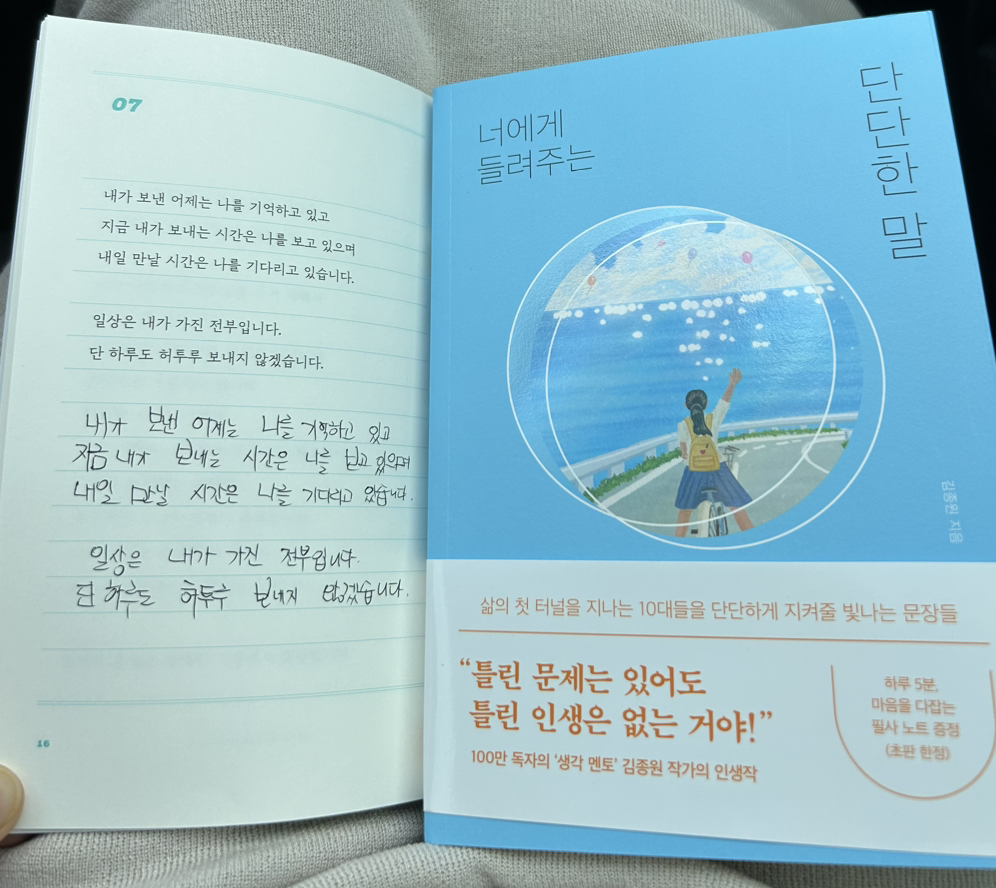 07
내가 보낸 어제는 나를 기억하고 있고
지금 내가 보내는 시간은 나를 보고 있으며
내일 만날 시간은 나를 기다리고 있습니다.
일상은 내가 가진 전부입니다.
단 하루도 허투루 보내지 않겠습니다.
내가 보낸 어제는 나를 기억하고 있고
지금 내가 보내는 시간은 나를 보고 있으며
내일 만날 시간은 나를 기다리고 있습니다.
일상은 내가 가진 전부입니다.
단 하루도 허투루 보내지 않겠습니다.
16
너에게
들려주는
단단한 말
김종원 지음
삶의 첫 터널을 지나는 10대들을 단단하게 지켜줄 빛나는 문장들
“틀린 문제는 있어도
틀린 인생은 없는 거야!”
100만 독자의 ‘생각 멘토’ 김종원 작가의 인생작
하루 5분,
마음을 다잡는
필사 노트 증정
(초판 한정)